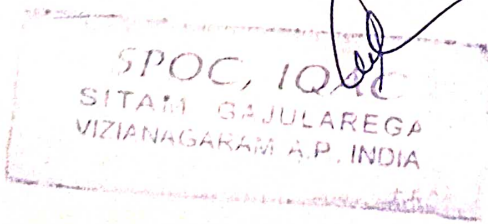 SPOC, IQAC
SITAM GAJULAREGA
VIZIANAGARAM A.P. INDIA